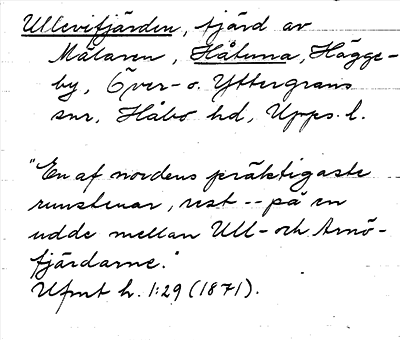 Ullevifjärden, fjärd av
Mälaren, Håtuna, Hägge-
by, Över- o. Yttergrans
snr, Håbo hd, Upps. l.
"En af nordens präktigaste
runstenar, rest -- på en
udde mellan Ull- och Arnö-
fjärdarne."
Ufmt h. 1:29 (1871).